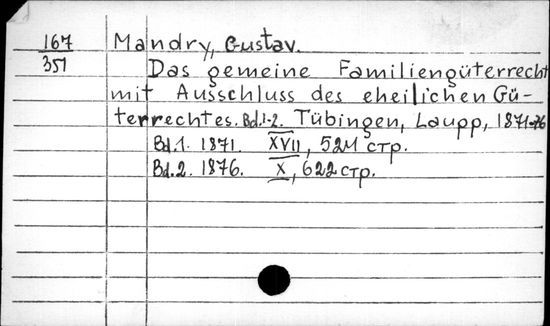 167 Mandry, Gustav.
351 Das gemeine Familiengüterrecht
mit Ausschluss des eheilichen Gü-
terrechtes. Bd.1-2. Tübingen, Laupp, 1871-76
Bd.1. 1871. XVII, 524 стр.
Bd.2. 1876. X, 622 стр.